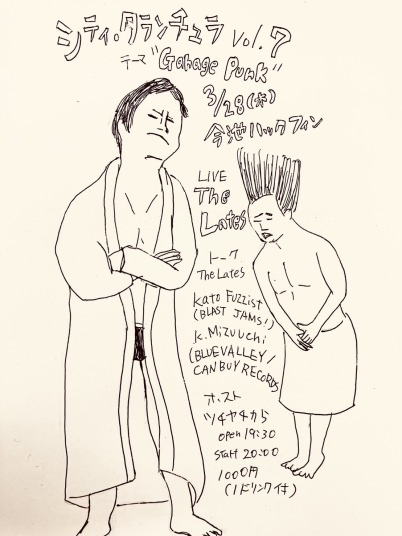 シティ・タランチュラ vol.7
テーマ "Gahage Punk"
3/28(水)
今池ハックフィン
LIVE
The
Lates
トーク
The Lates
Kato Fuzzist
(BLAST JAMS!)
K.Mizuuchi
(BLUEVALLEY/
CAN BUY RECORDS
ホスト
ツチヤチカら
open 19:30
start 20:00
1000円
(1ドリンク付)